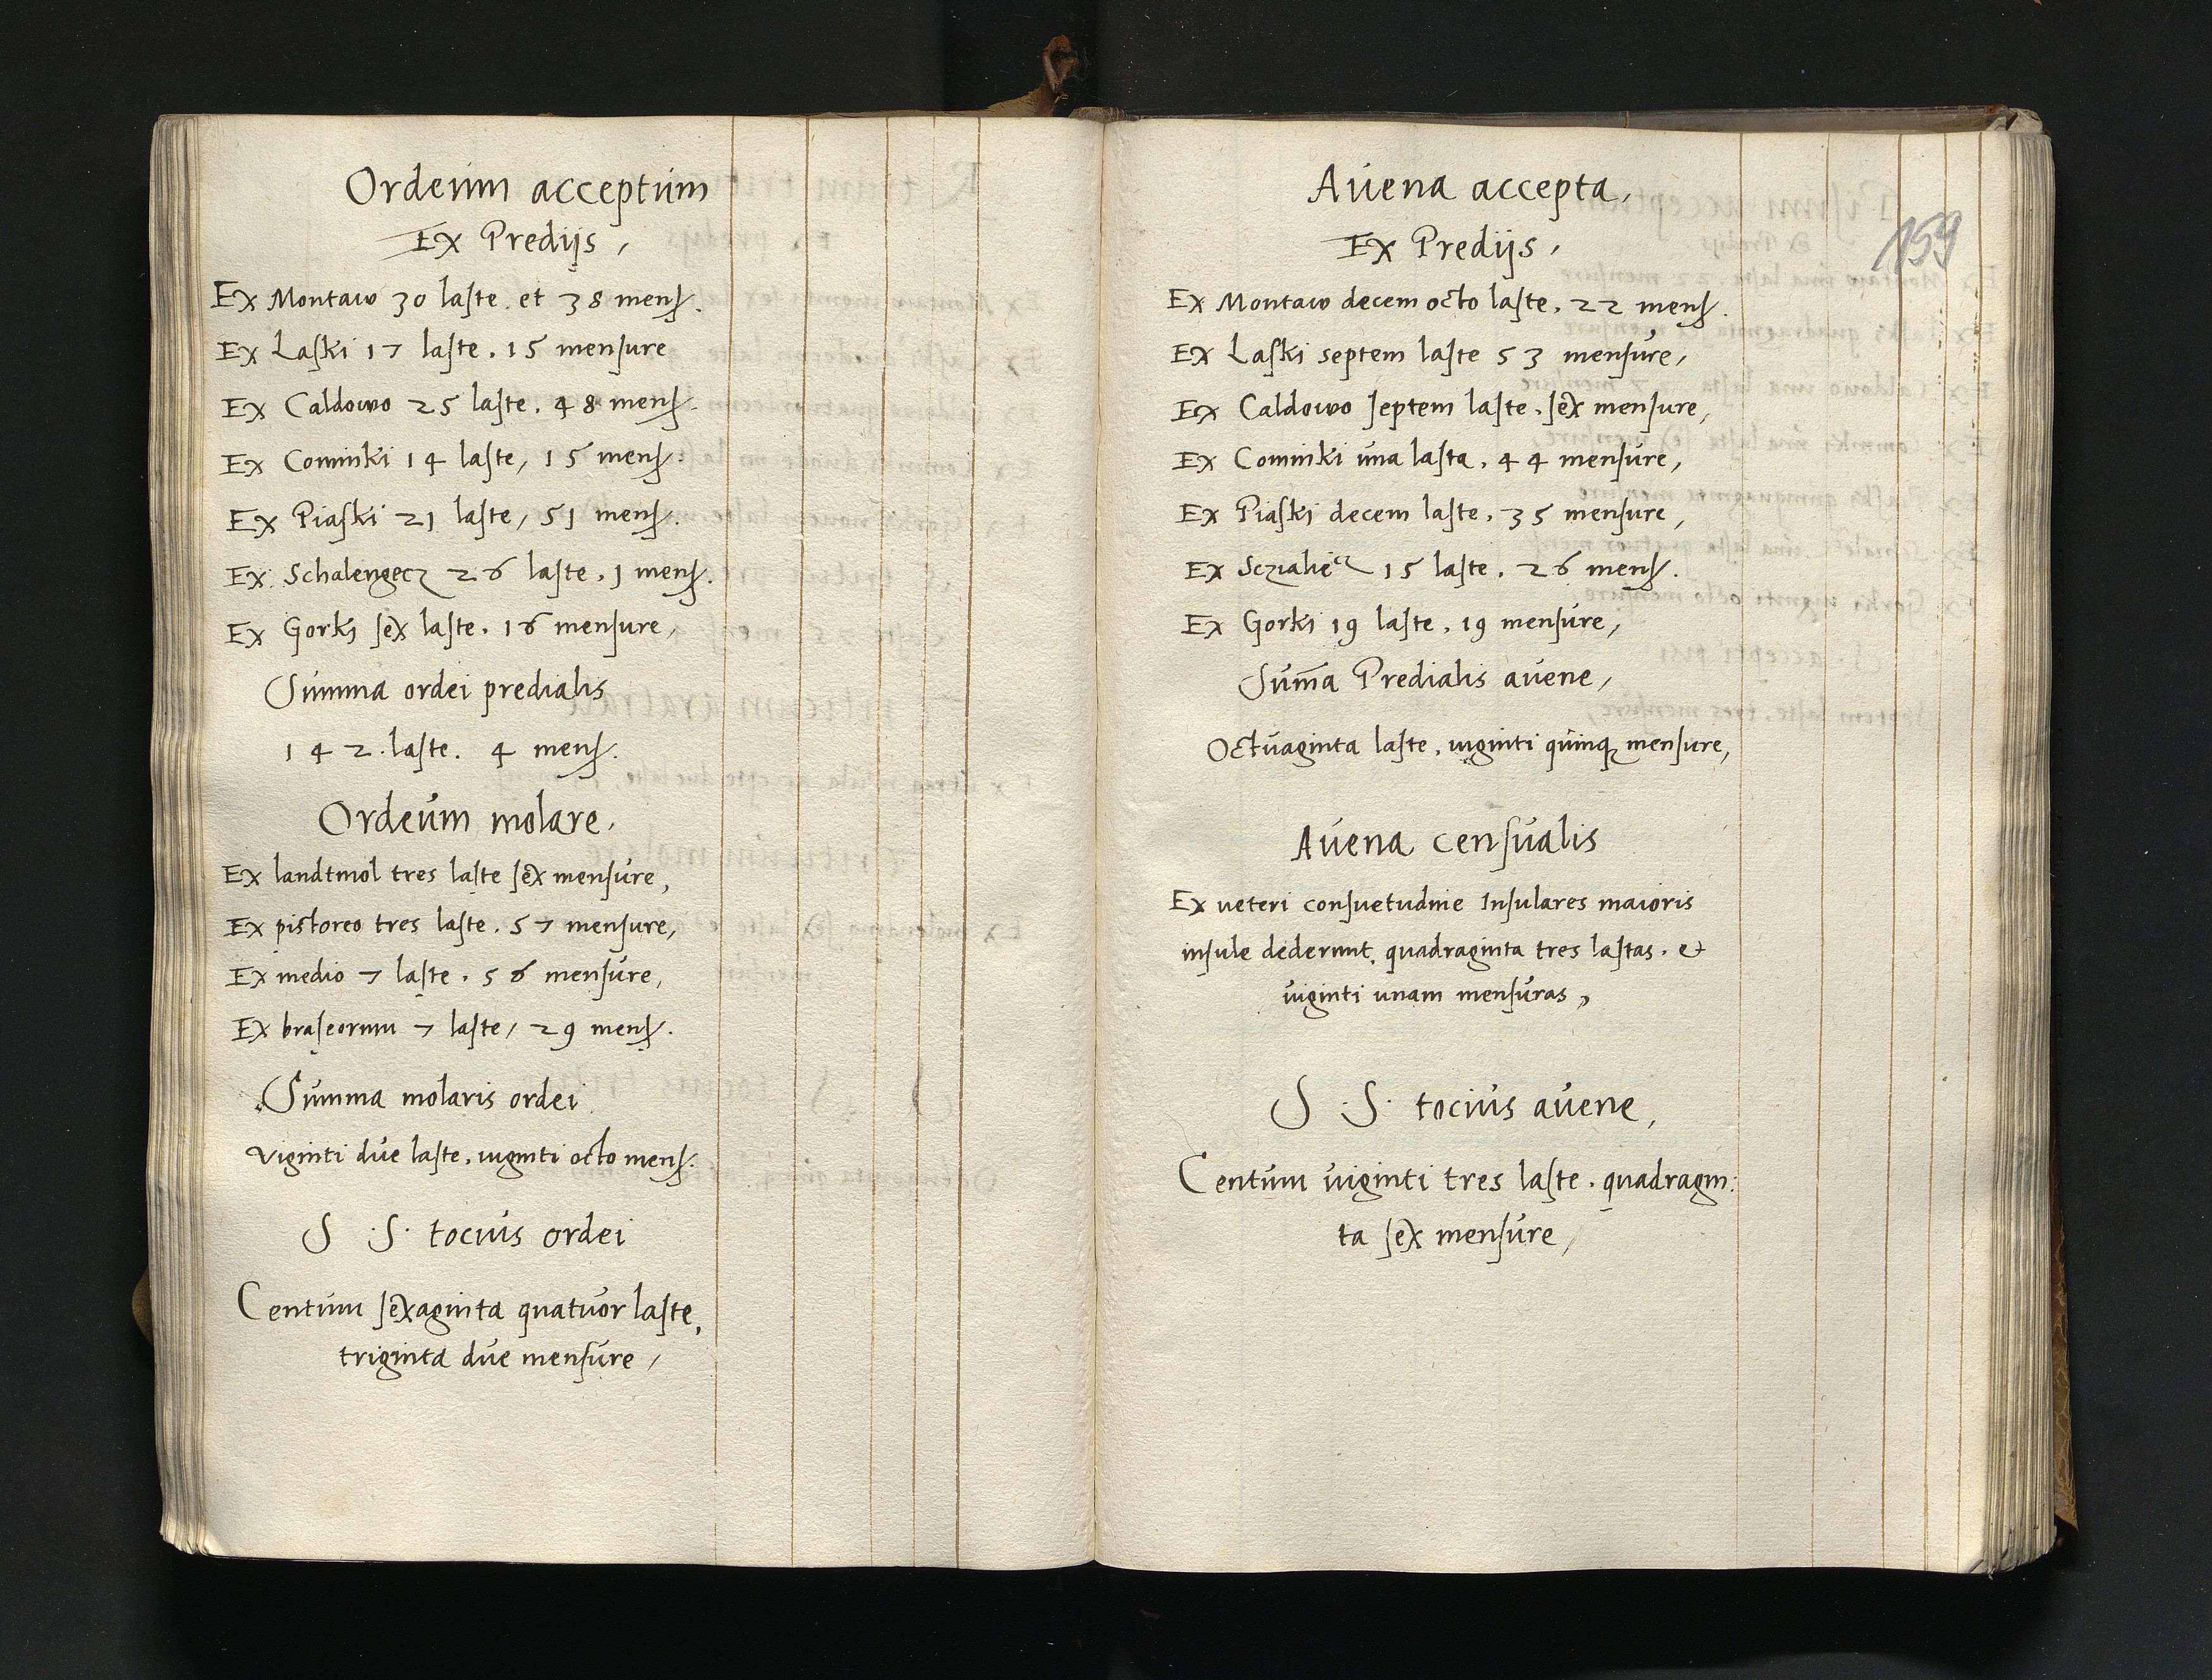 Ordeum acceptum
Ex Predijs,
Ex Montaw 30 laste. et 38 mens.
Ex Laski 17 laste. 15 mensure
Ex Caldowo 25 laste. 48 mens.
Ex Cominki 14 laste, 15 mens.
Ex Piaski 21 laste, 51 mens.
Ex Schalengecz 26 laste. 1 mens.
Ex Gorki sex laste. 16 mensure,
Summa ordei predialis
142. laste. 4 mens.
Ordeum molare.
Ex landtmol tres laste sex mensure,
Ex pistoreo tres laste. 57 mensure,
Ex medio 7 laste. 56 mensure,
Ex braseorum 7 laste, 29 mens.
Summa molaris ordei
Viginti due laste. viginti octo mens.
S .S. tocius ordei
Centum sexaginta quatuor laste,
triginta due mensure,
Auena accepta,
159
Ex Predijs,
Ex Montaw decem octo laste. 22 mens.
Ex Laski septem laste 53 mensure,
Ex Caldowo septem laste. sex mensure,
Ex Cominki una lasta. 44 mensure,
Ex Piaski decem laste. 35 mensure,
Ex Sczaliecz 15 laste. 26 mens.
Ex Gorki 19 laste. 19 mensure,
Sum̅a Predialis auene,
Octuaginta laste. viginti quinq mensure,
Auena censualis
Ex ueteri consuetudine Insulares maioris
insule dederunt. quadraginta tres lastas. et
uiginti unam mensuras,
S .S. tocius auene,
Centum uiginti tres laste. quadragin:
ta sex mensure,